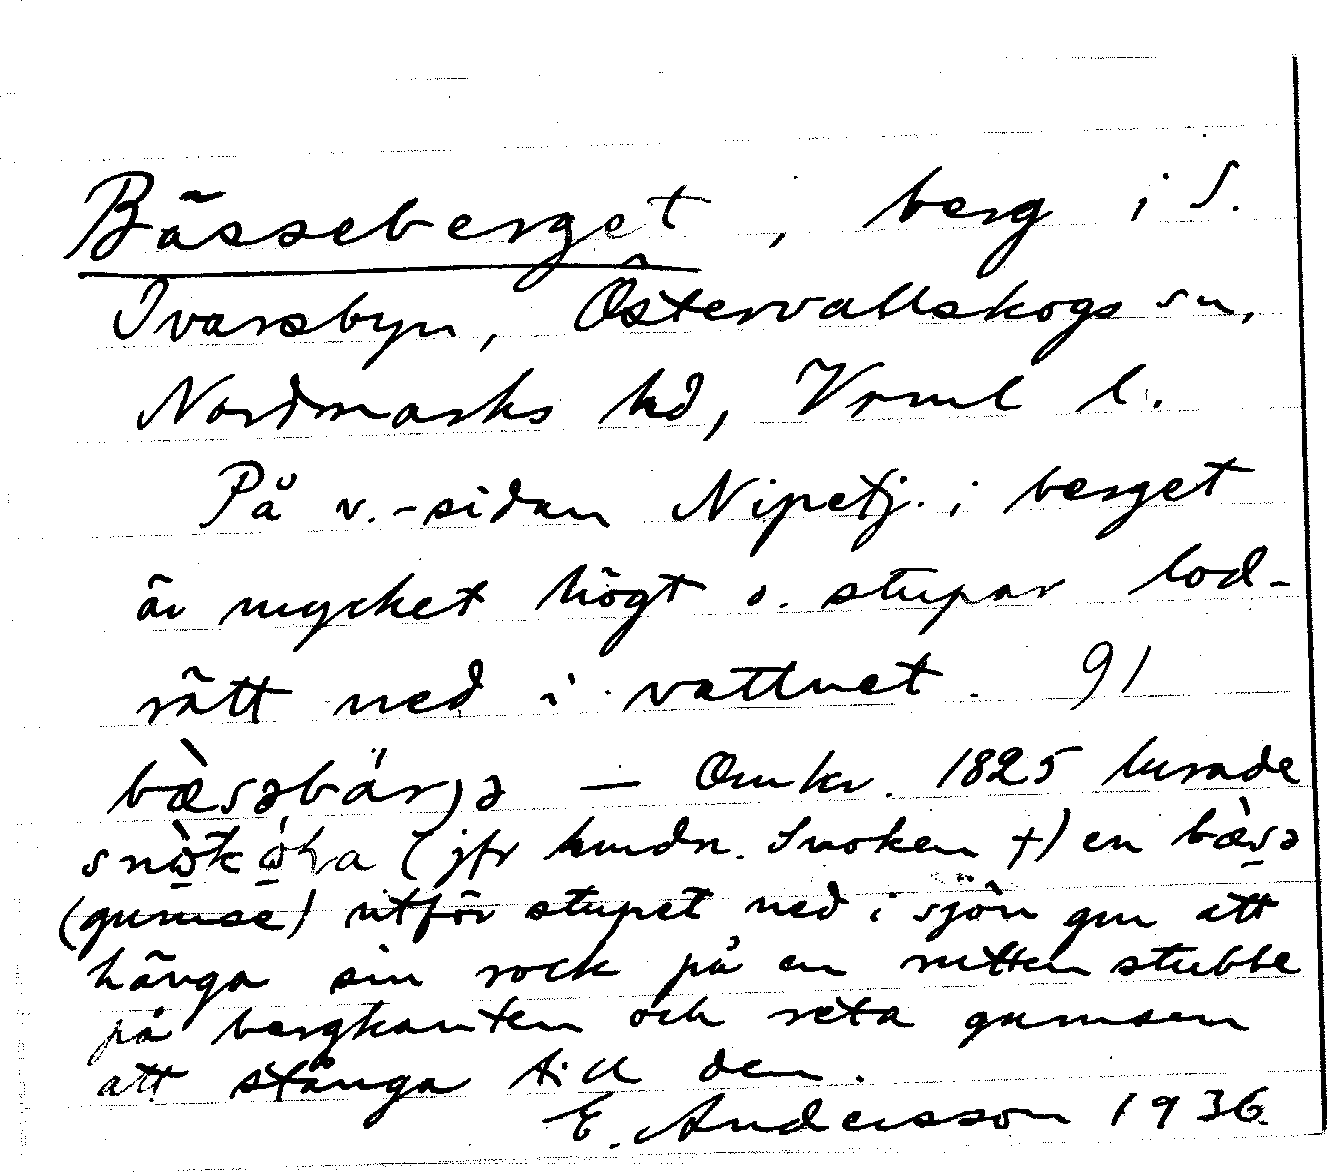 Bässeberget, berg i S.
Ivarsbyn, Östervallskogs sn,
Nordmarks hd, Vrml l.
På v.-sidan Nipetj.; berget
är mycket högt o. stupar lod-
rätt ned i vattnet. 91
bæ̀səbä́rjə — Omkr. 1825 lurade
(jfr hmdn. Snoken †) en bæ̀sə
(gumse) utför stupet ned i sjön gm att
hänga sin rock på en rutten stubbe
på bergkanten och reta gumsen
att stånga till den.
E. Andersson 1936.